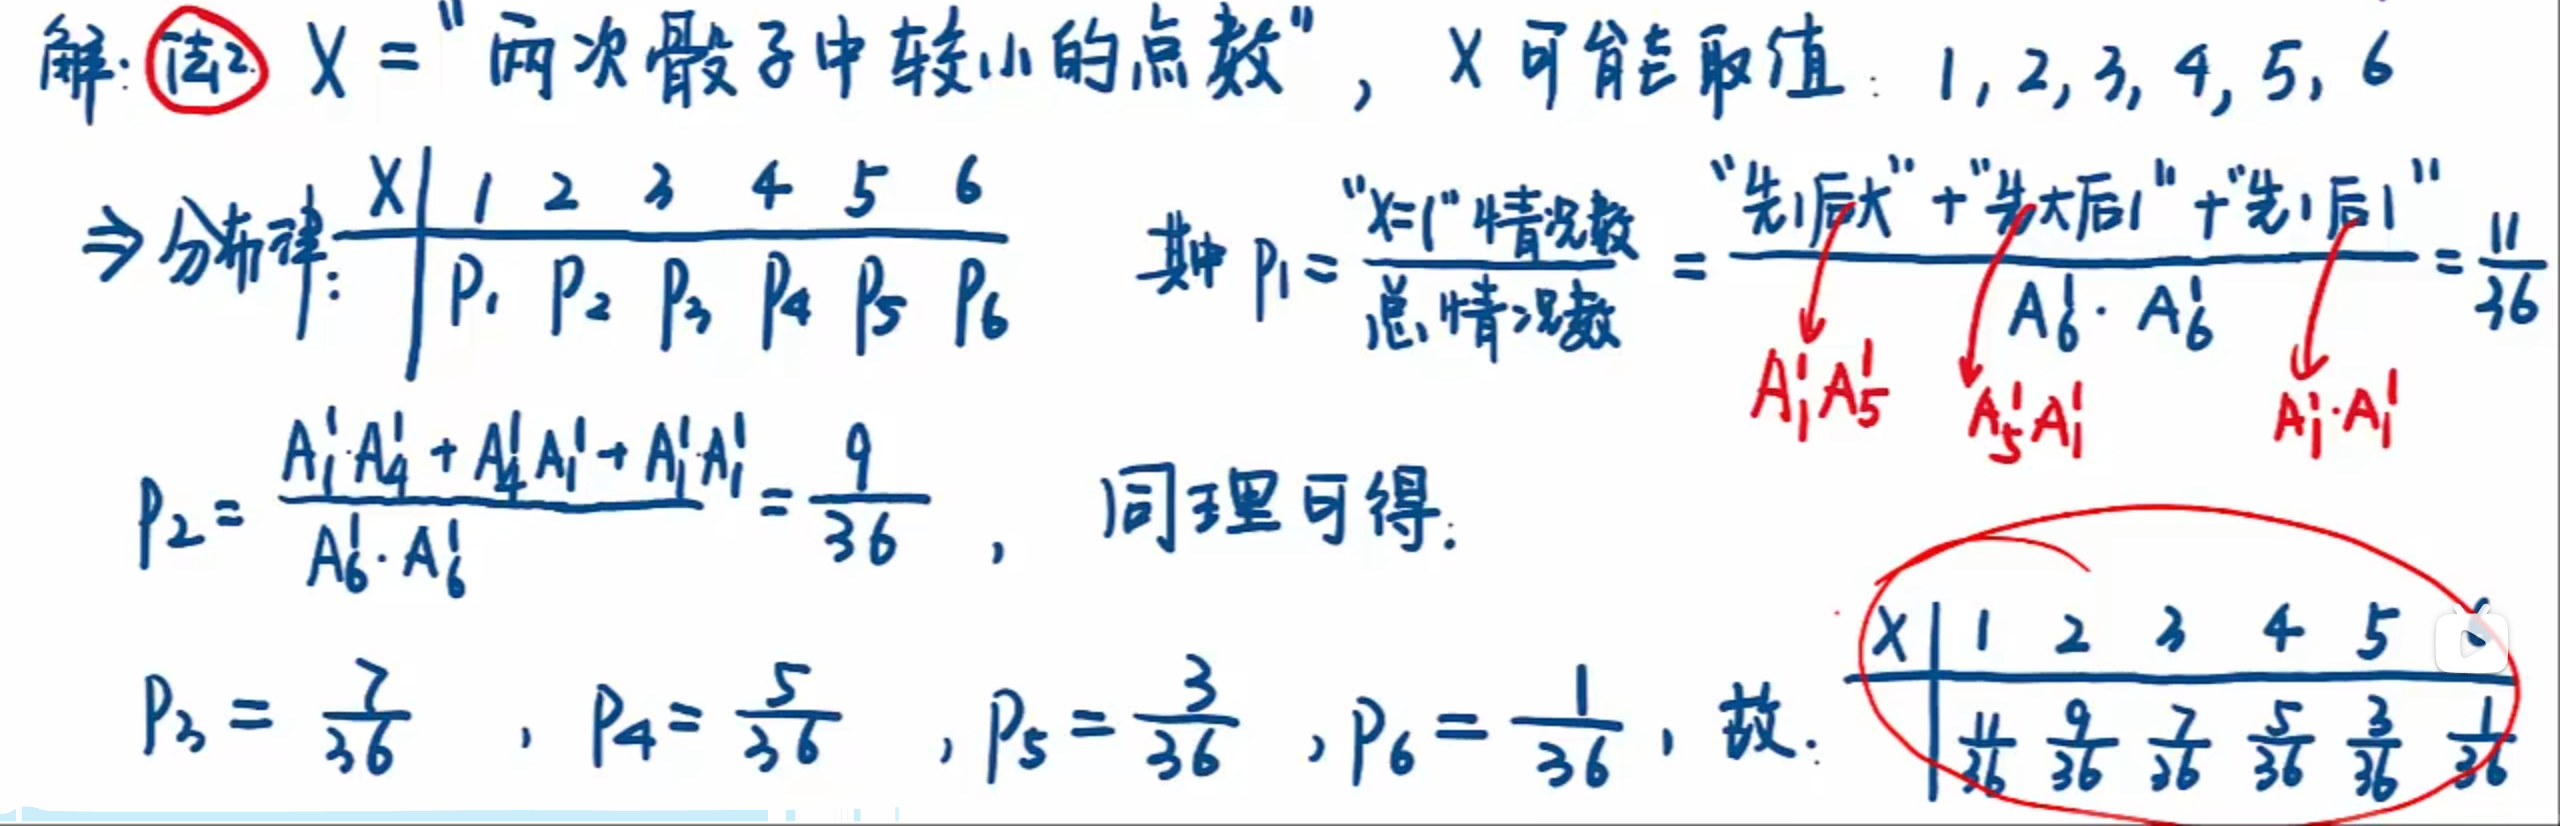 解: 法2. X = "两次骰子中较小的点数", X可能取值: 1, 2, 3, 4, 5, 6
⇒ 分布律: X | 1 2 3 4 5 6
P₁ P₂ P₃ P₄ P₅ P₆
其中 P₁ = "X=1"情况数 / 总情况数 = "先1后大" + "先大后1" + "先1后1" / A₆¹·A₆¹ = 11/36
A₁¹A₅¹ A₅¹A₁¹ A₁¹·A₁¹
P₂ = A₁¹·A₄¹ + A₄¹A₁¹ + A₁¹·A₁¹ / A₆¹·A₆¹ = 9/36, 同理可得:
P₃ = 7/36, P₄ = 5/36, P₅ = 3/36, P₆ = 1/36, 故:
X | 1 2 3 4 5 6
11/36 9/36 7/36 5/36 3/36 1/36